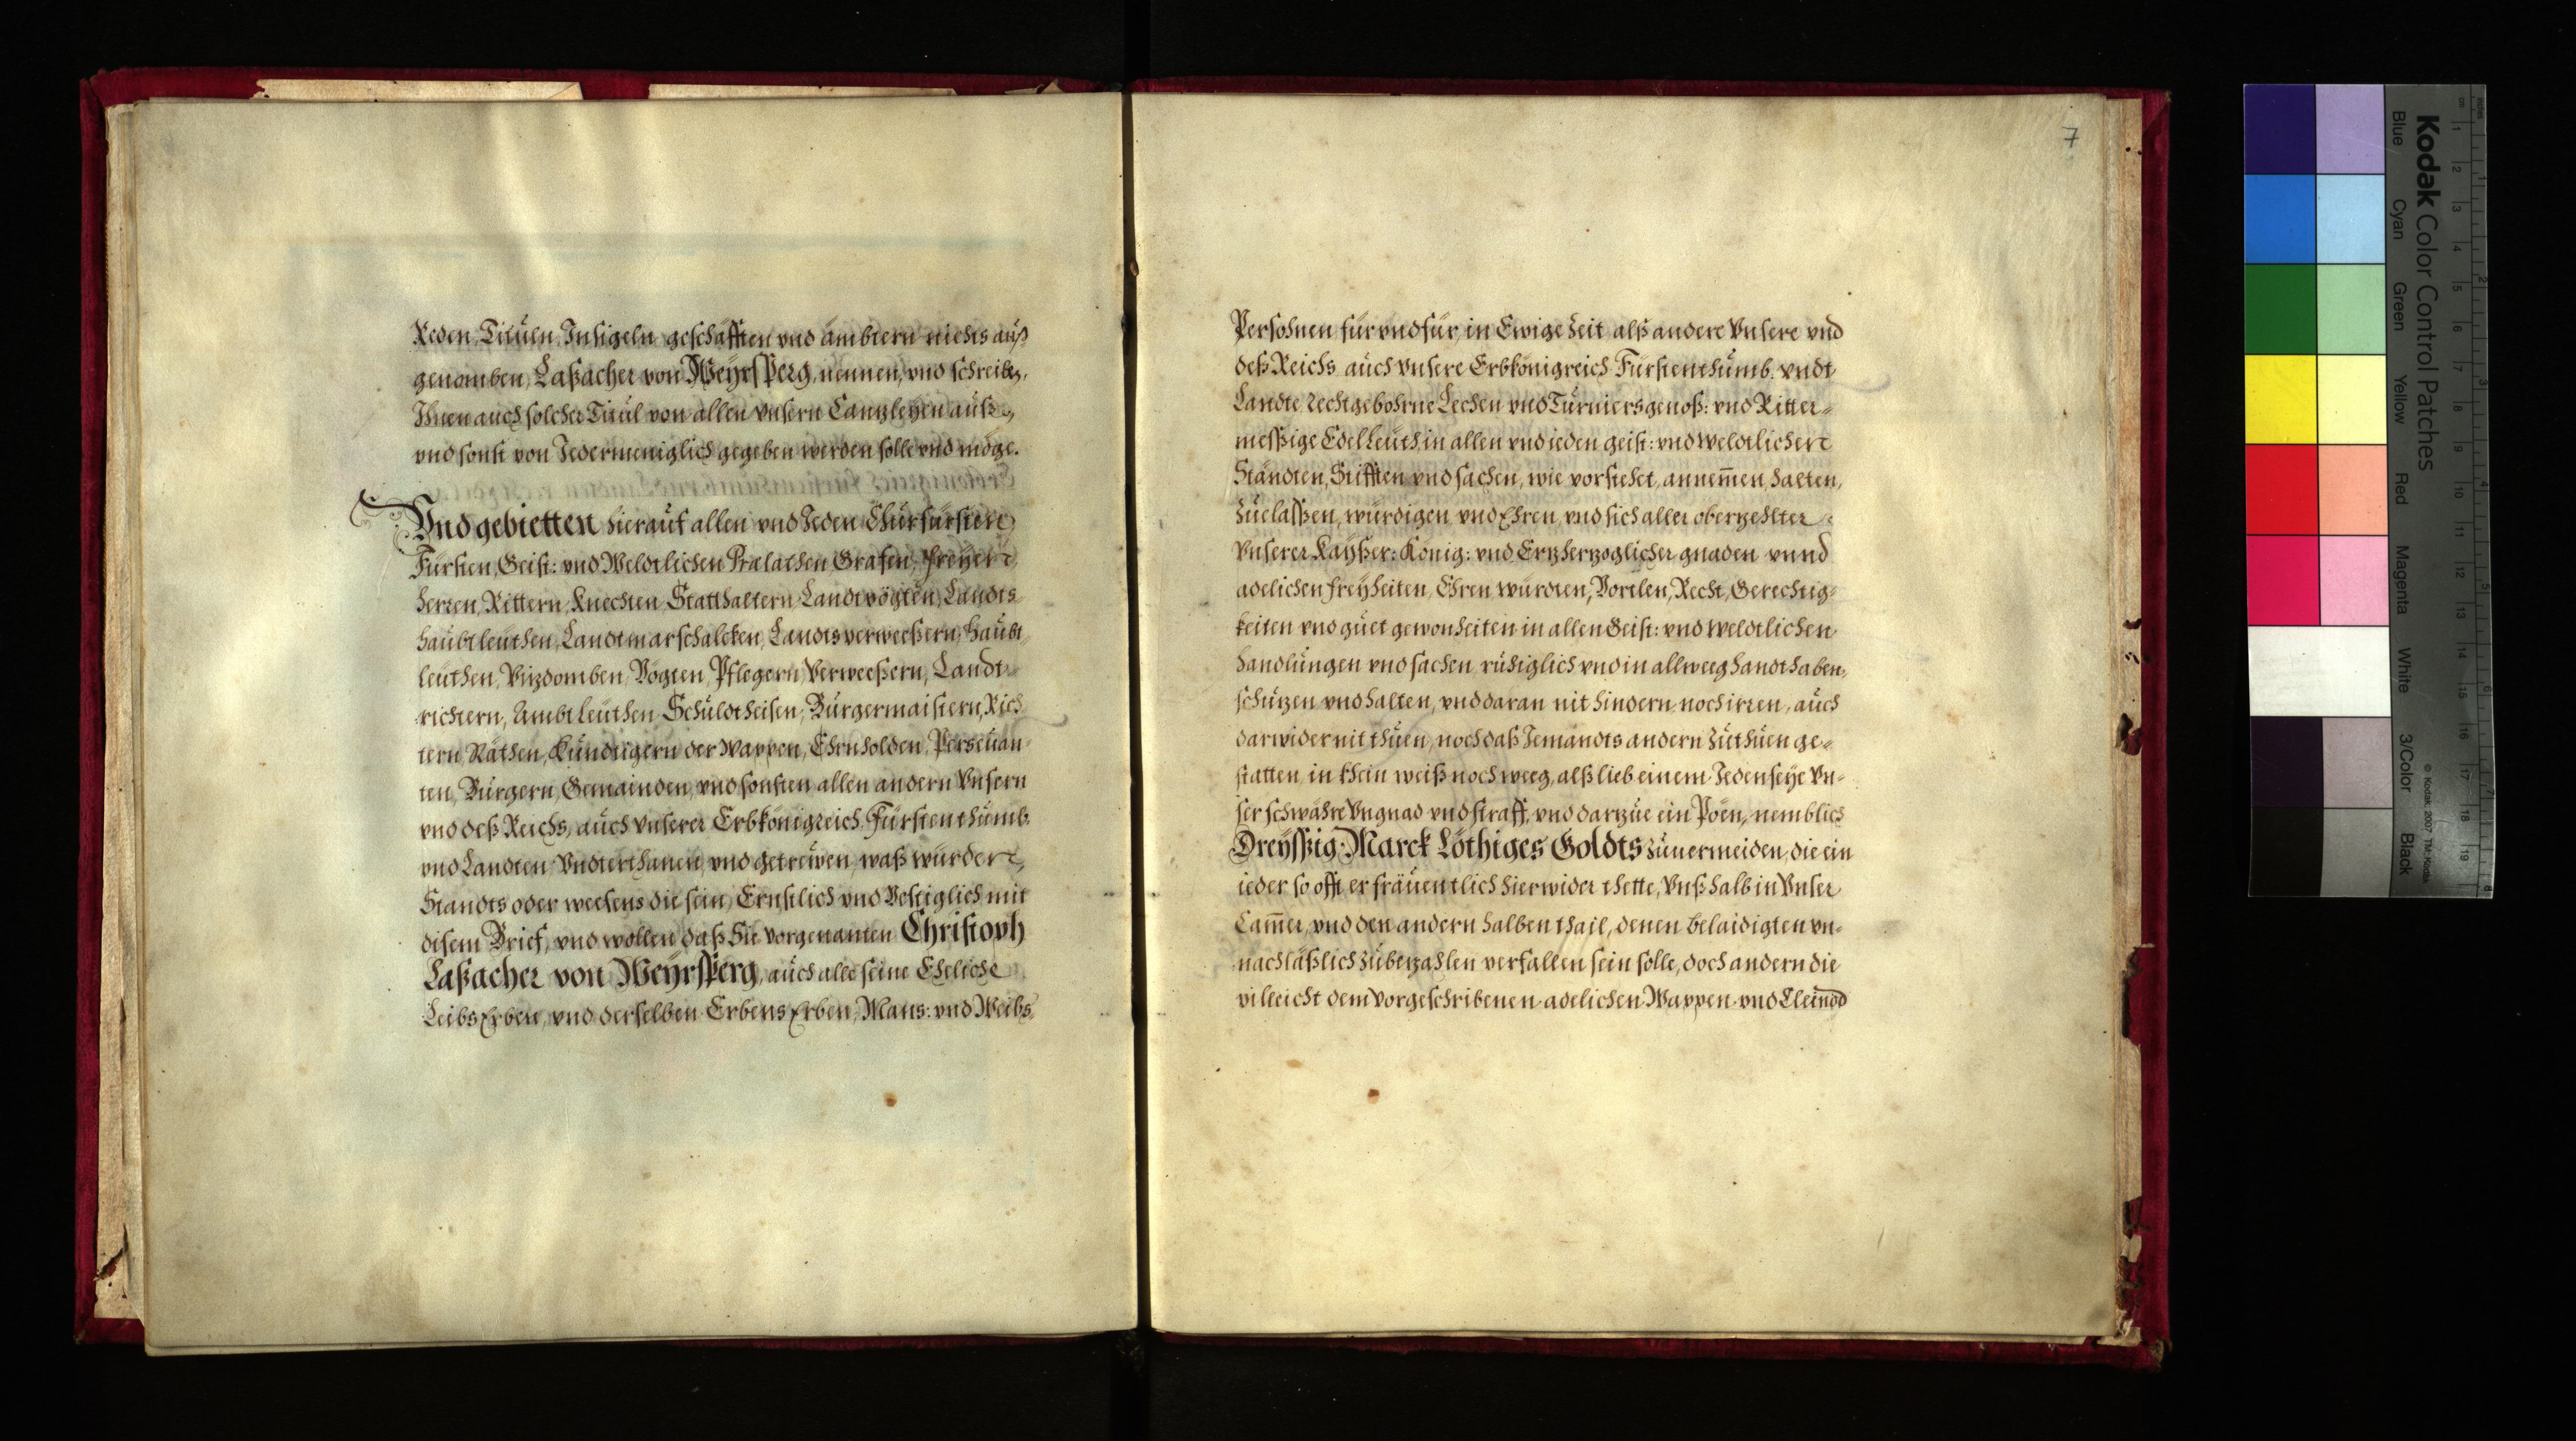 Reden, Titüln, Insigeln, geschäfften vnd ämbtern nichts auß
genomben, Laßacher von Weyrsperg, nennen, vnd schreiben,
Ihnen auch solcher Titül von allen vnsern Cantzleyen auß
vnd sonst von Jedermeniglich gegeben werden solle vnd möge.
Vnd gebietten hierauf allen vnd Jeden Chürfürsten
Fürsten, Geist: vnd Weldtlichen Prælathen, Grafen, Freyen
herren, Rittern, Knechten, Statthaltern, Landtvögten, Landts
haübtleüthen, Landtmarschalcken, Landtsverweeßern, Haübt
leüthen, Vizdomben, Vögten, Pflegern, Verweeßern, Landt
richtern, Ambtleüthen, Schüldtheisen, Bürgermaistern, Rich
tern, Räthen, Kündtigern der Wappen, Ehrnholden, Perseüan
ten, Bürgern, Gemainden, vnd sonsten allen andern Vnsern
vnd deß Reichs, aüch vnserer Erbkönigreich, Fürstenthümb
vnd Landten Vndterthanen, vnd getrewen, waß würden,
Standts oder weesens die sein, Ernstlich vnd Vestiglich mit
disem Brief, vnd wollen daß Sie vorgenanten Christoph
Laßacher von Weyrsperg, aüch alle seine Eheliche
Leibs Erben, vnd derselben Erbens Erben, Mans: vnd Weibs
7
Persohnen für vnd für, in Ewige Zeit, alß andere Vnsere vnd
deß Reichs, aüch vnsere Erbkönigreich Fürstenthümb, vndt
Landte rechtgebohrne Lechen vnd Türniersgenoß: vnd Ritter=
messßige Edelleüth, in allen vnd ieden geist: vnd weldtlichen
Ständten, Stifften vnd sachen, wie vorstehet, annem̄en, halten,
züelaßßen, würdigen vnd Ehren, vnd sich aller oberzehlter
Vnserer Kayßer: König: vnd Ertzhertzoglicher gnaden vnnd
adelichen freyheiten, Ehren, würdten, Vortlen, Recht, Gerechtig=
keiten vnd güet gewonheiten in allen Geist: vnd weldtlichen
handlüngen vnd sachen, rühiglich vnd in allweeg handthaben,
schützen vnd halten, vnd daran nit hindern noch irren, aüch
darwider nit thüen, noch daß Jemandts andern züthüen ge=
statten, in khein weiß noch weeg, alß lieb einem Jeden seye Vn=
ser schwähre Vngnad vnd straff, vnd dartzüe ein Pöen, nemblich
Dreyssßig Marck Löthiges Goldts züuermeiden, die ein
ieder so offt er fräüentlich hierwider thette, Vnß halb in Vnser
Cam̄er, vnd den andern halben thail, denen belaidigten vn=
nachläßlich zübetzahlen verfallen sein solle, doch andern die
villeicht dem vorgeschribenen adelichen Wappen vnd Cleinod
Kodak Color Control Patches
Blue
Cyan
Green
Yellow
Red
Magenta
White
3/Color
Black
© Kodak, 2007 TM: Kodak